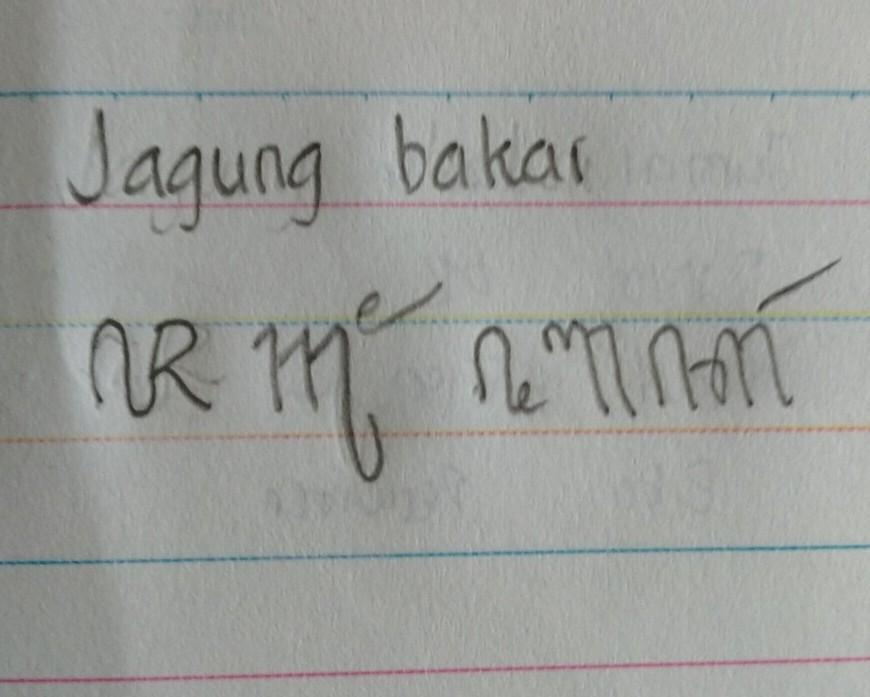 Jagung bakar
ꦗꦒꦸꦁ ꦧꦏꦂ